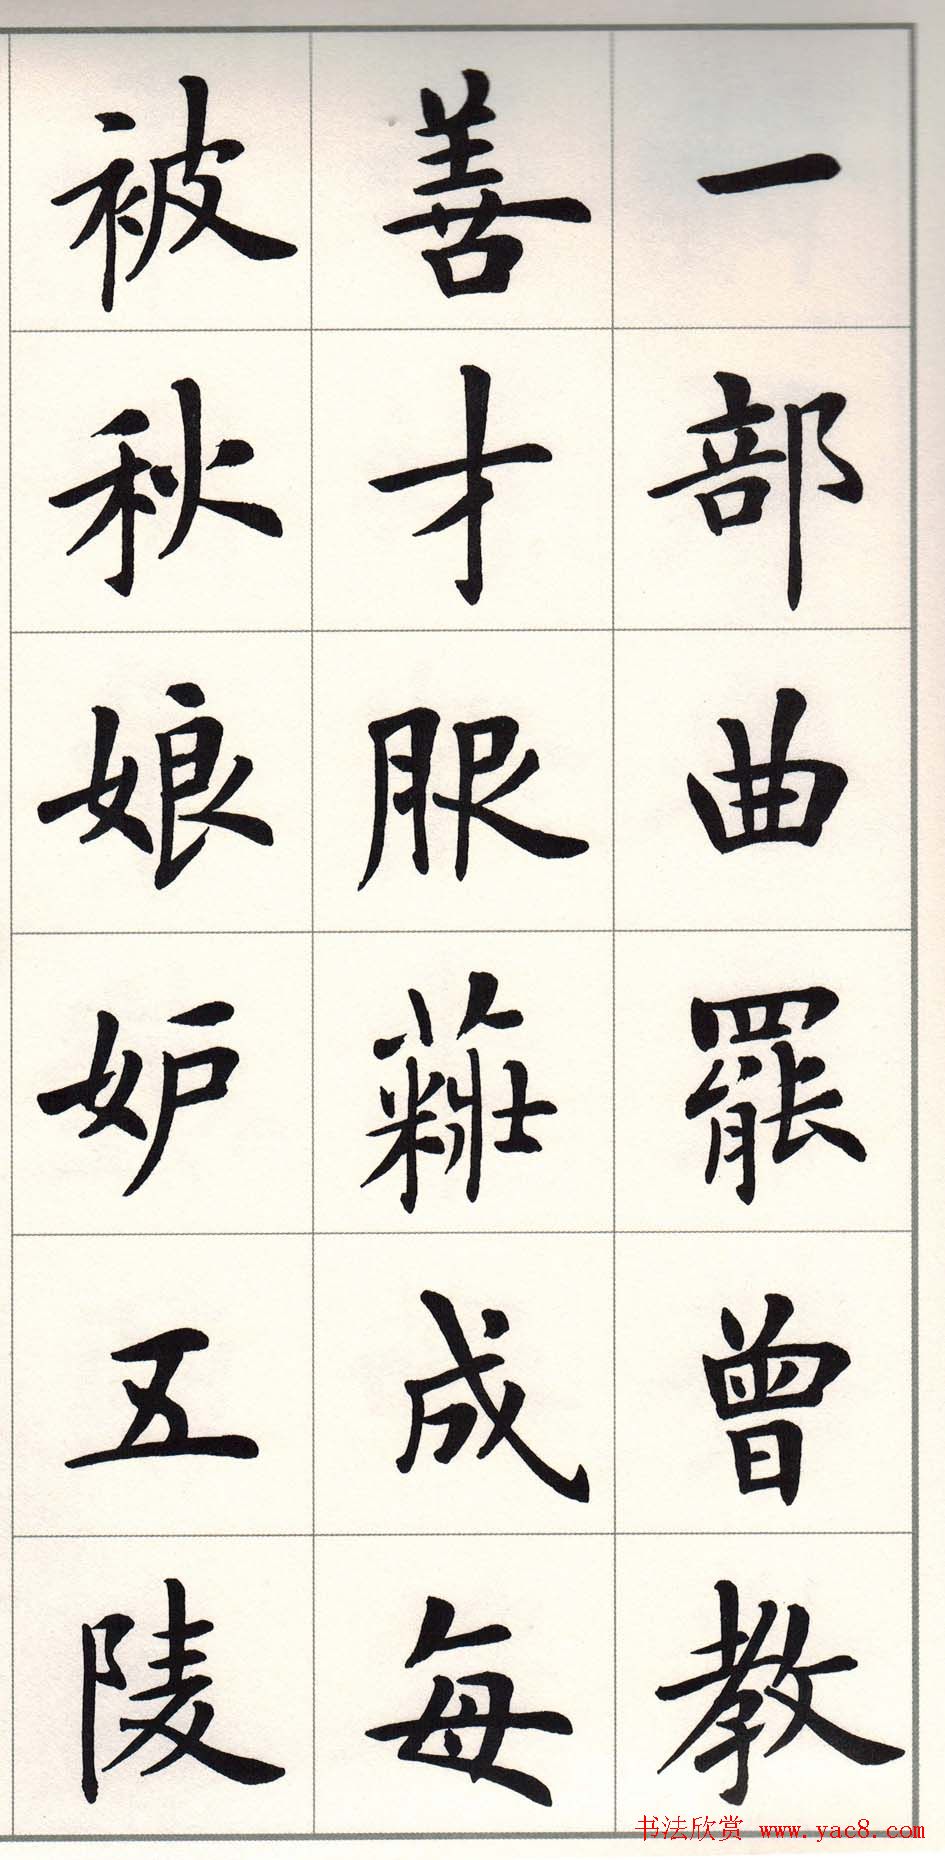 一部曲罷曾教
善才服蘱成每
被秋娘妒五陵
书法欣赏 www.yac8.com